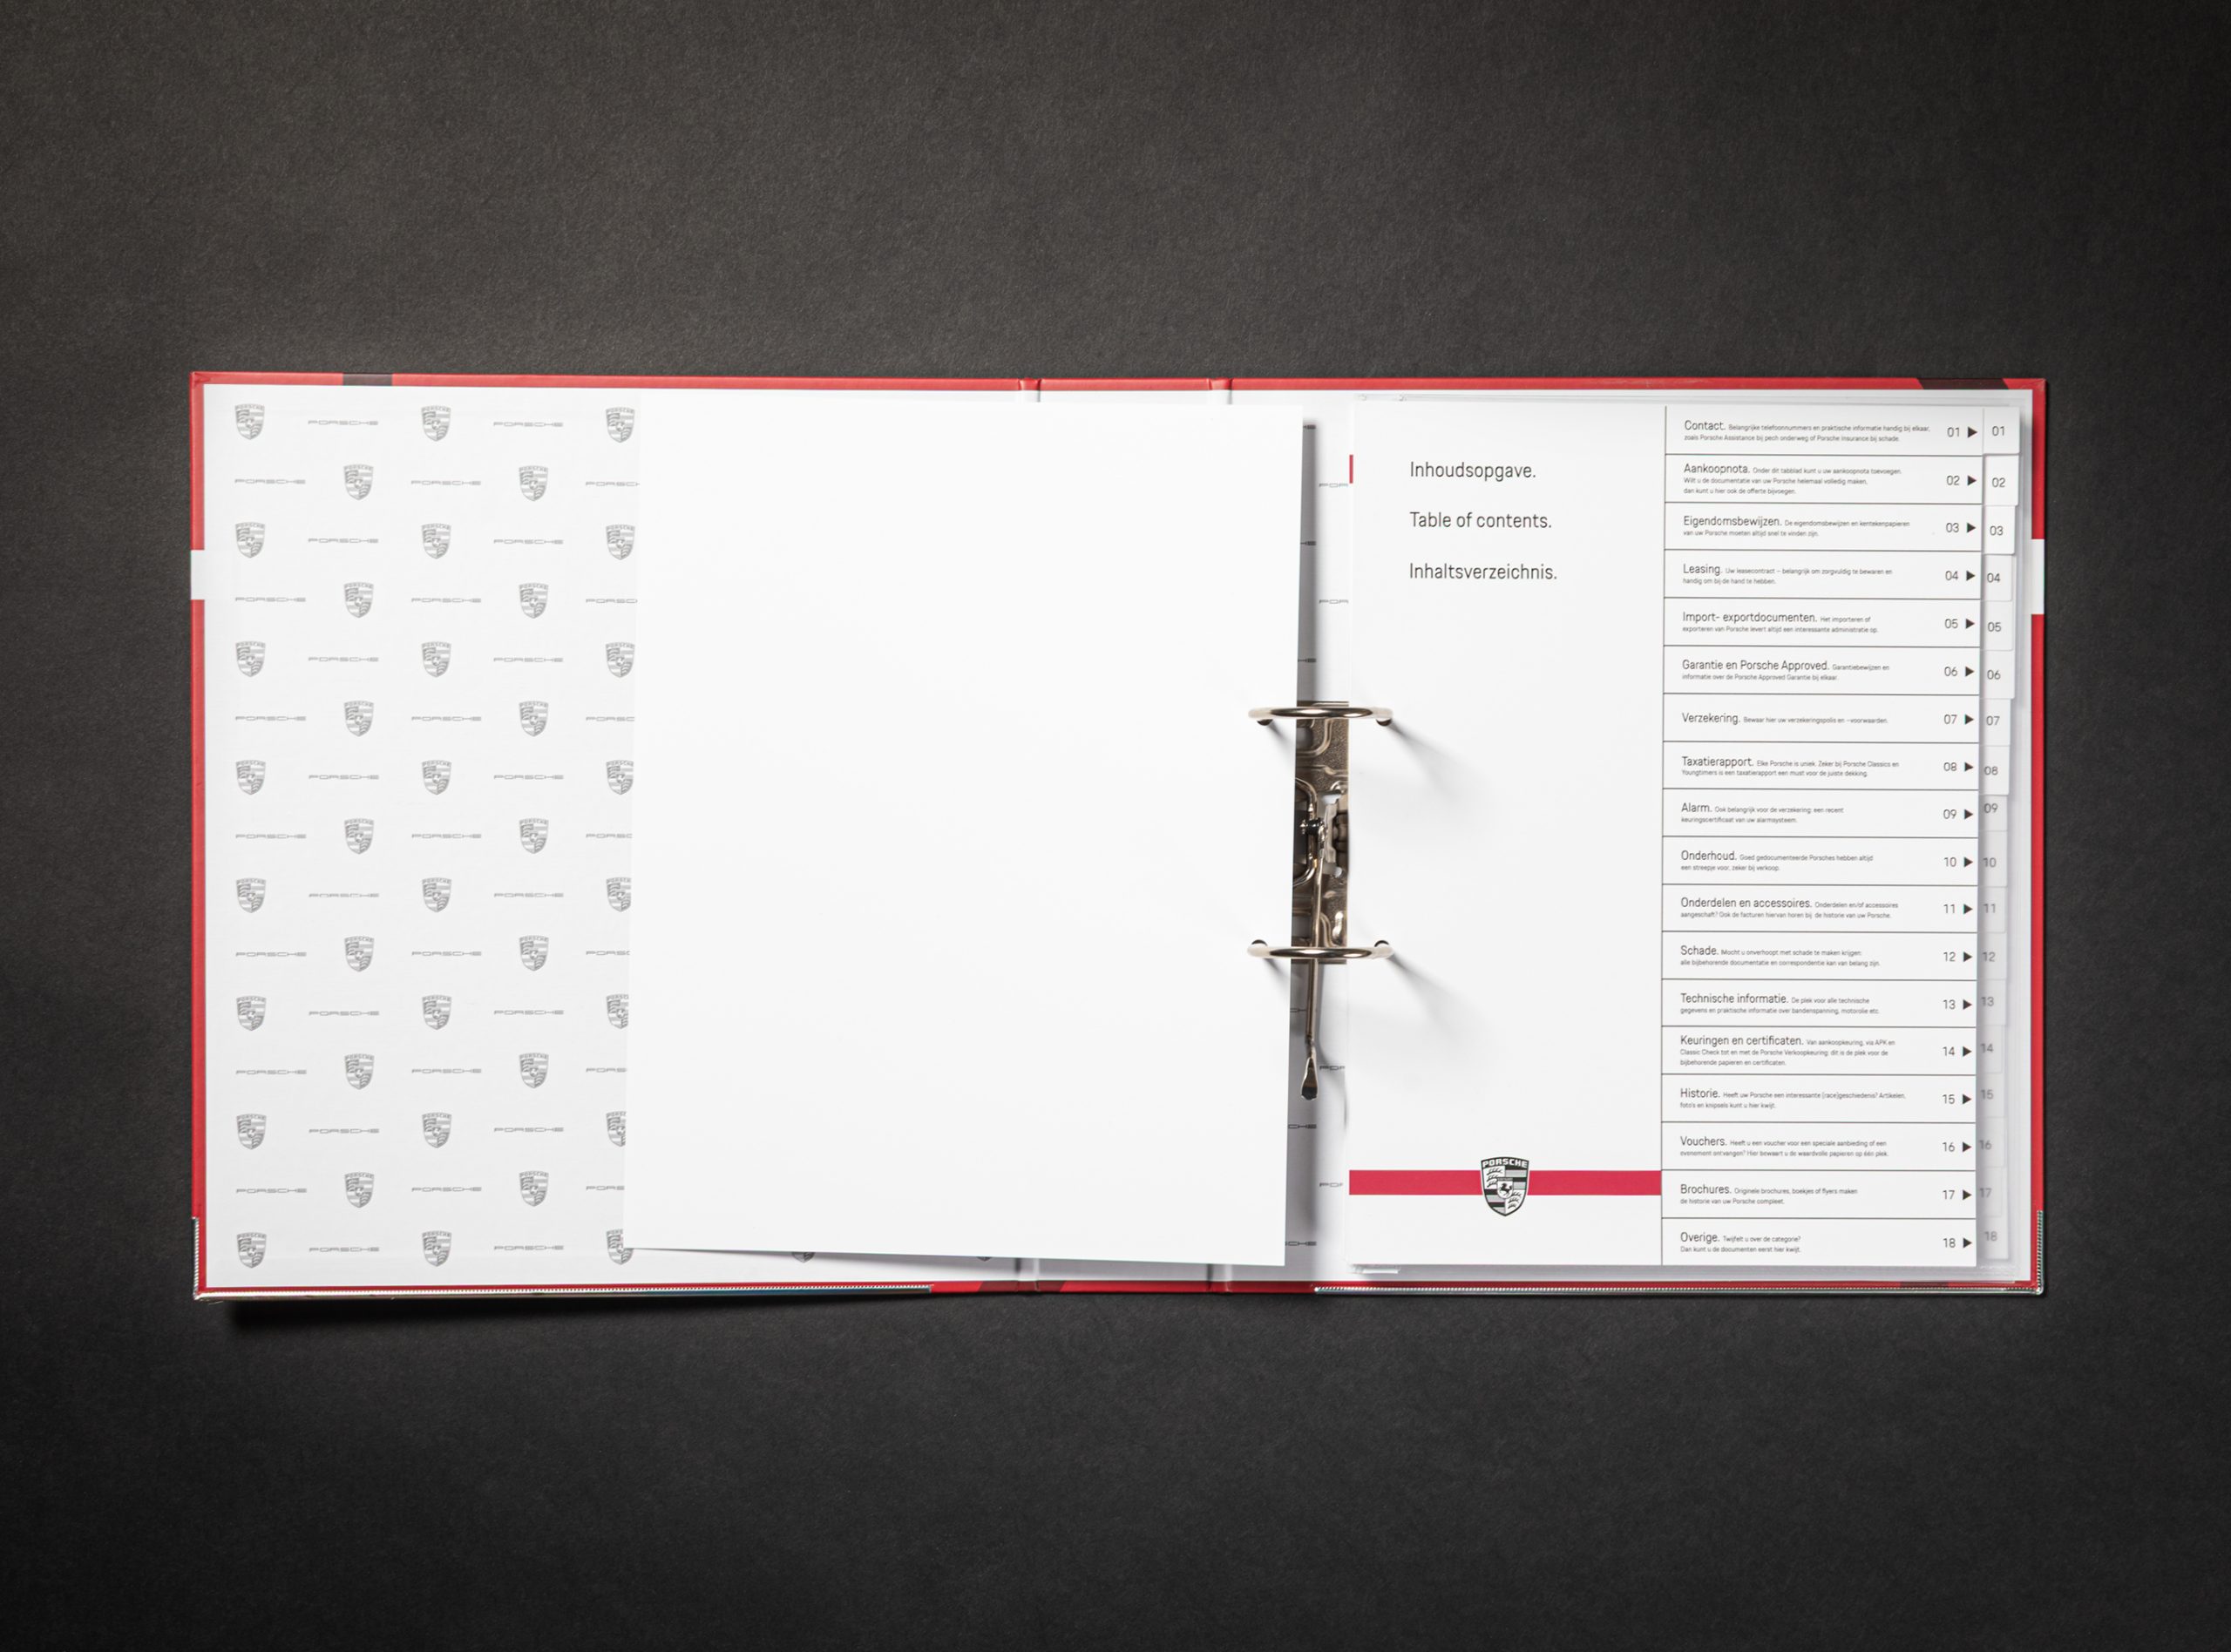 Inhoudsopgave.
Table of contents.
Inhaltsverzeichnis.
PORSCHE
Contact. Belangrijke telefoonnummers en praktische informatie handig bij elkaar,
zoals Porsche Assistance bij pech onderweg of Porsche Insurance bij schade.
01
01
Aankoopnota. Onder dit tabblad kunt u uw aankoopnota toevoegen.
Wilt u de documentatie van uw Porsche helemaal volledig maken,
dan kunt u hier ook de offerte bijvoegen.
02
02
Eigendomsbewijzen. De eigendomsbewijzen en kentekenpapieren
van uw Porsche moeten altijd snel te vinden zijn.
03
03
Leasing. Uw leasecontract – belangrijk om zorgvuldig te bewaren en
handig om bij de hand te hebben.
04
04
Import- exportdocumenten. Het importeren of
exporteren van Porsche levert altijd een interessante administratie op.
05
05
Garantie en Porsche Approved. Garantiebewijzen en
informatie over de Porsche Approved Garantie bij elkaar.
06
06
Verzekering. Bewaar hier uw verzekeringspolis en -voorwaarden.
07
07
Taxatierapport. Elke Porsche is uniek. Zeker bij Porsche Classics en
Youngtimers is een taxatierapport een must voor de juiste dekking.
08
08
Alarm. Ook belangrijk voor de verzekering: een recent
keuringscertificaat van uw alarmsysteem.
09
09
Onderhoud. Goed gedocumenteerde Porsches hebben altijd
een streepje voor, zeker bij verkoop.
10
10
Onderdelen en accessoires. Onderdelen en/of accessoires
aangeschaft? Ook de facturen hiervan horen bij de historie van uw Porsche.
11
11
Schade. Mocht u onverhoopt met schade te maken krijgen:
alle bijbehorende documentatie en correspondentie kan van belang zijn.
12
12
Technische informatie. De plek voor alle technische
gegevens en praktische informatie over bandenspanning, motorolie etc.
13
13
Keuringen en certificaten. Van aankoopkeuring, via APK en
Classic Check tot en met de Porsche Verkoopkeuring: dit is de plek voor de
bijbehorende papieren en certificaten.
14
14
Historie. Heeft uw Porsche een interessante (race)geschiedenis? Artikelen,
foto's en knipsels kunt u hier kwijt.
15
15
Vouchers. Heeft u een voucher voor een speciale aanbieding of een
evenement ontvangen? Hier bewaart u de waardevolle papieren op één plek.
16
16
Brochures. Originele brochures, boekjes of flyers maken
de historie van uw Porsche compleet.
17
17
Overige. Twijfelt u over de categorie?
Dan kunt u de documenten eerst hier kwijt.
18
18